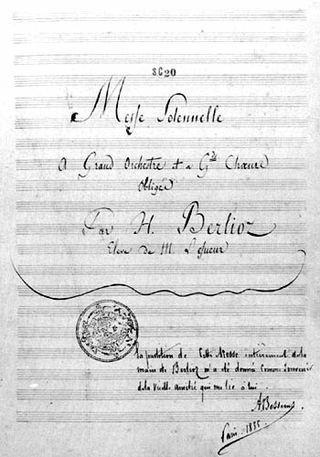 SC20
Messe Solennelle
A Grand Orchestre et a Gds Chœurs
Obligés
Par H. Berlioz
Eleve de M. Lesueur
La partition de Cette Messe entièrement de la
main de Berlioz m'a été donnée comme souvenir
de la vieille amitié qui me lie à lui.
ABessems
Paris. 1835